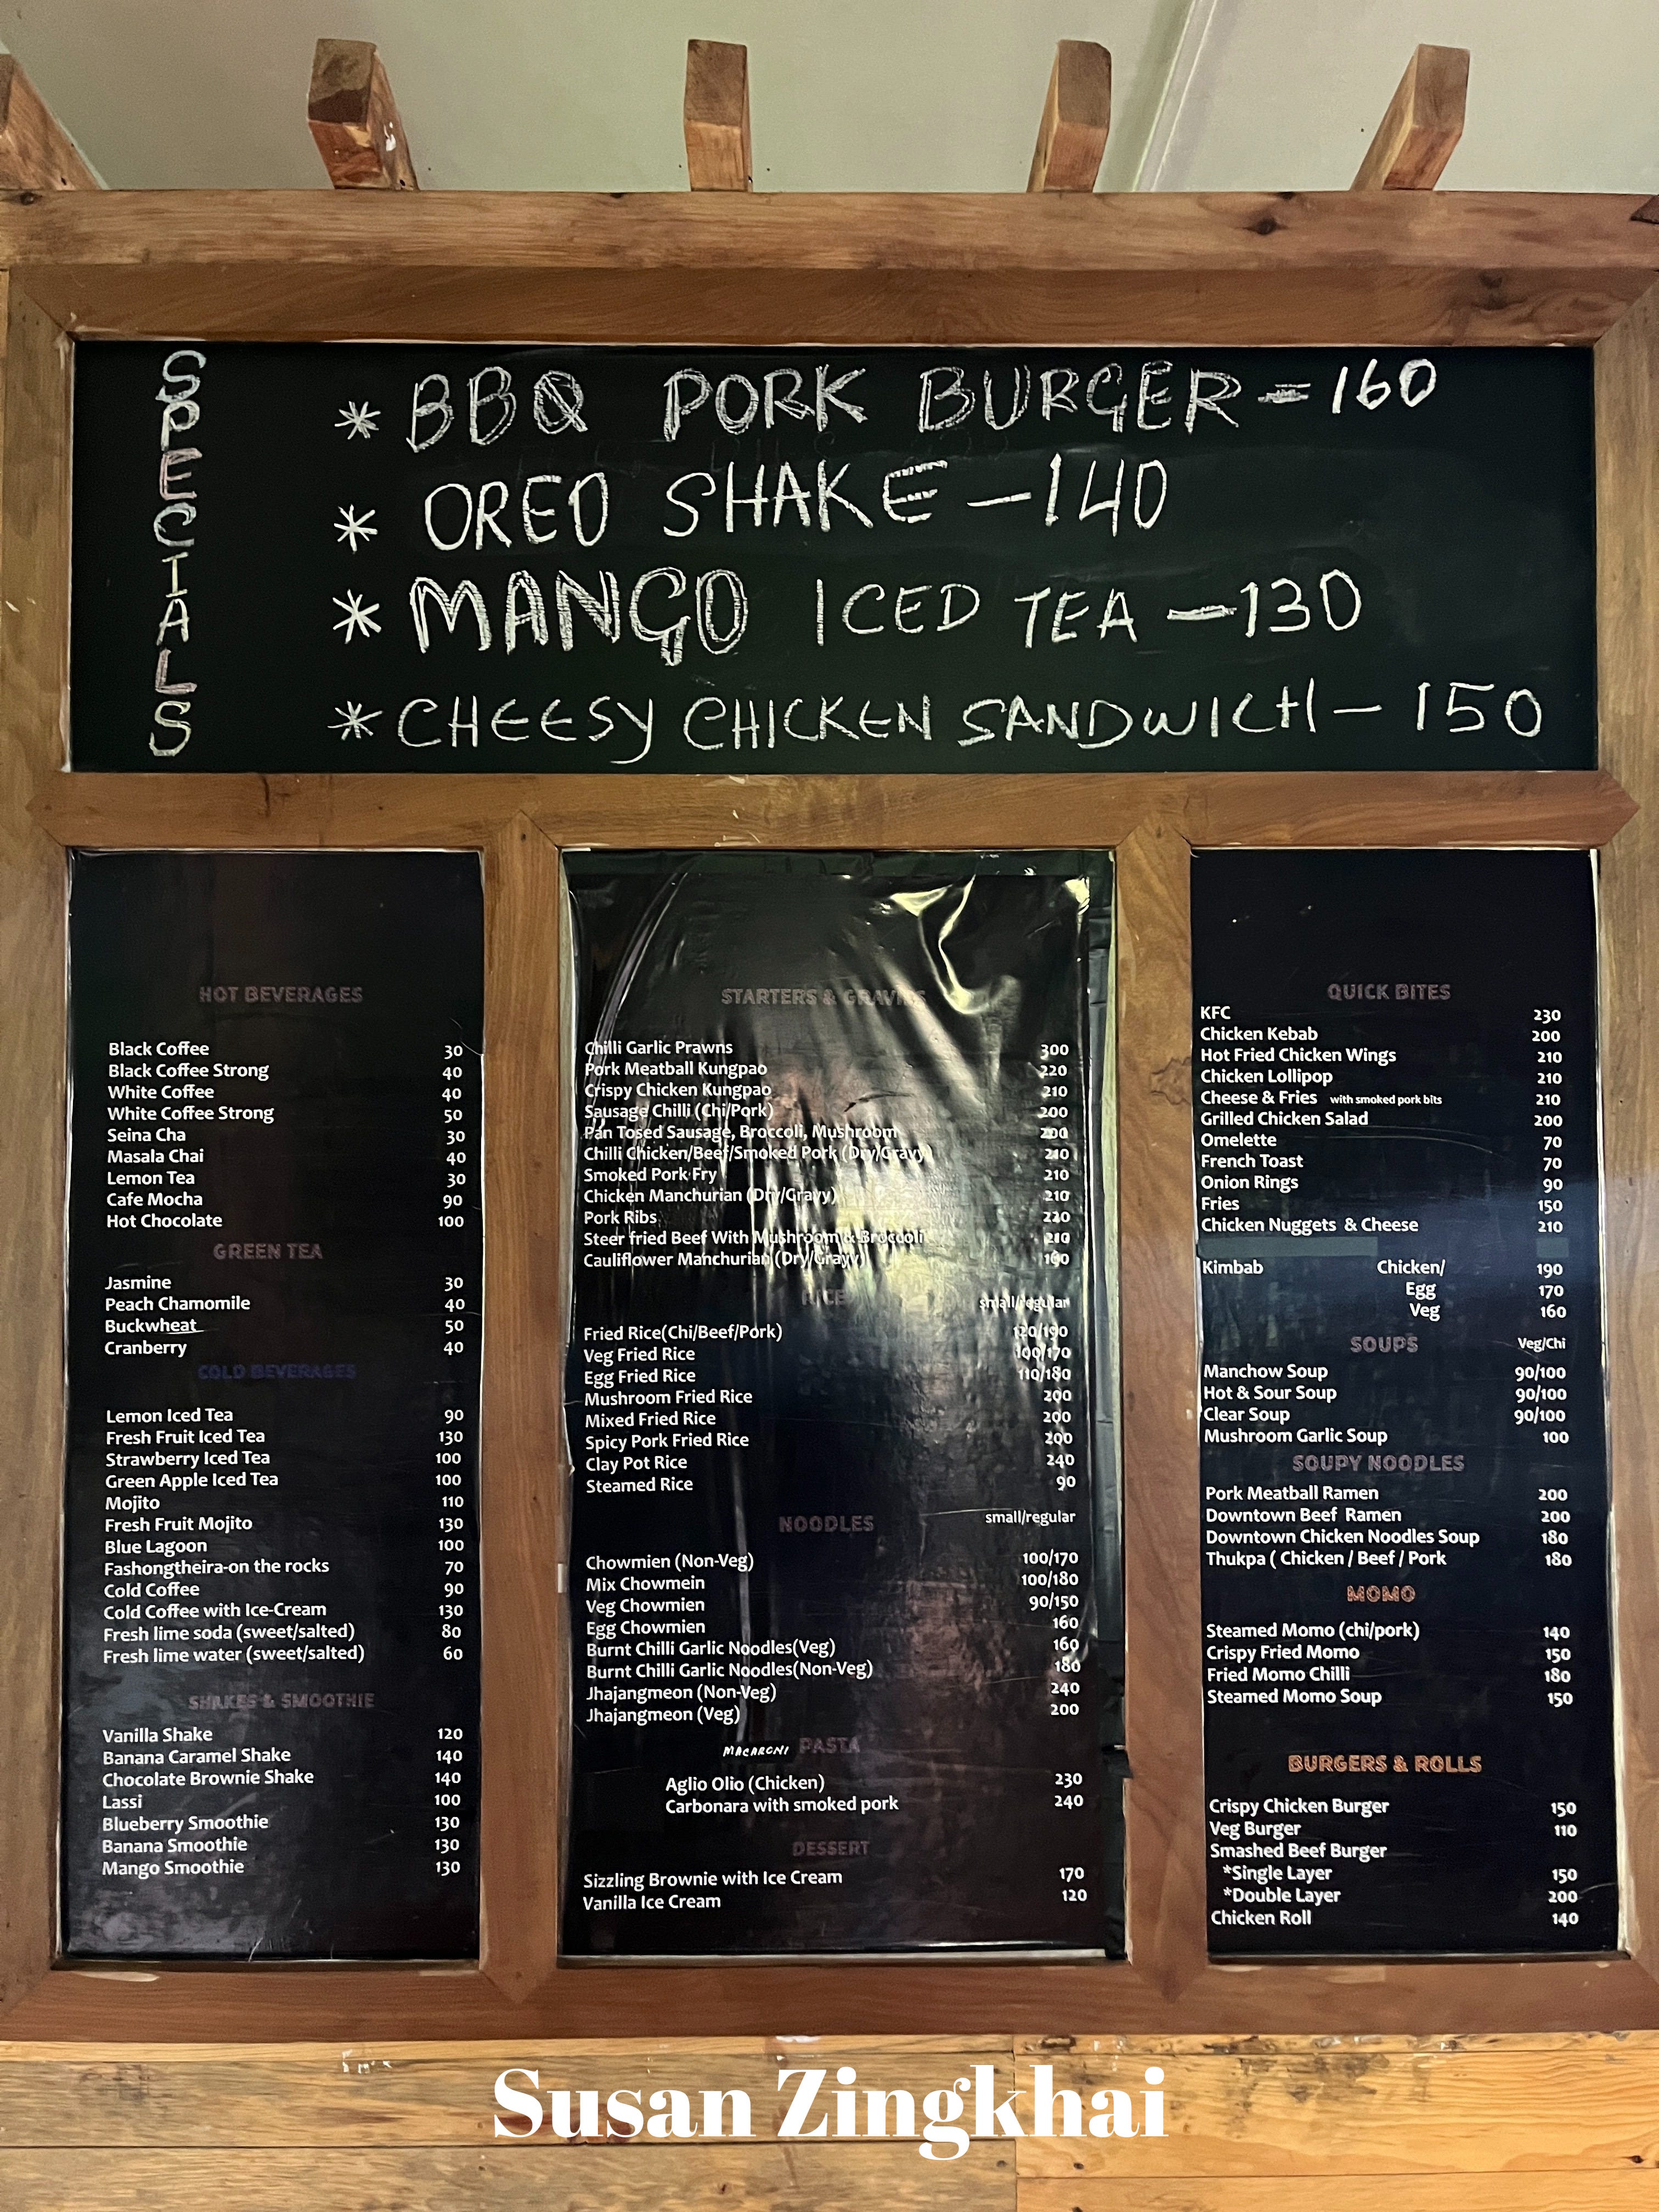 SPECIALS
* BBQ PORK BURGER = 160
* OREO SHAKE - 140
* MANGO ICED TEA - 130
* CHEESY CHICKEN SANDWICH - 150
HOT BEVERAGES
Black Coffee 30
Black Coffee Strong 40
White Coffee 40
White Coffee Strong 50
Seina Cha 30
Masala Chai 40
Lemon Tea 30
Cafe Mocha 90
Hot Chocolate 100
GREEN TEA
Jasmine 30
Peach Chamomile 40
Buckwheat 50
Cranberry 40
COLD BEVERAGES
Lemon Iced Tea 90
Fresh Fruit Iced Tea 130
Strawberry Iced Tea 100
Green Apple Iced Tea 100
Mojito 110
Fresh Fruit Mojito 130
Blue Lagoon 100
Fashongtheira-on the rocks 70
Cold Coffee 90
Cold Coffee with Ice-Cream 130
Fresh lime soda (sweet/salted) 80
Fresh lime water (sweet/salted) 60
SHAKES & SMOOTHIE
Vanilla Shake 120
Banana Caramel Shake 140
Chocolate Brownie Shake 140
Lassi 100
Blueberry Smoothie 130
Banana Smoothie 130
Mango Smoothie 130
STARTERS & GRAVIES
Chilli Garlic Prawns 300
Pork Meatball Kungpao 220
Crispy Chicken Kungpao 210
Sausage Chilli (Chi/Pork) 200
Pan Tosed Sausage, Broccoli, Mushroom 200
Chilli Chicken/Beef/Smoked Pork (Dry/Gravy) 210
Smoked Pork Fry 210
Chicken Manchurian (Dry/Gravy) 210
Pork Ribs 220
Steer fried Beef With Mushroom & Broccoli 210
Cauliflower Manchurian (Dry/Gravy) 160
RICE small/regular
Fried Rice(Chi/Beef/Pork) 120/190
Veg Fried Rice 100/170
Egg Fried Rice 110/180
Mushroom Fried Rice 200
Mixed Fried Rice 200
Spicy Pork Fried Rice 200
Clay Pot Rice 240
Steamed Rice 90
NOODLES small/regular
Chowmien (Non-Veg) 100/170
Mix Chowmein 100/180
Veg Chowmien 90/150
Egg Chowmien 160
Burnt Chilli Garlic Noodles(Veg) 160
Burnt Chilli Garlic Noodles(Non-Veg) 180
Jhajangmeon (Non-Veg) 240
Jhajangmeon (Veg) 200
MACARONI PASTA
Aglio Olio (Chicken) 230
Carbonara with smoked pork 240
DESSERT
Sizzling Brownie with Ice Cream 170
Vanilla Ice Cream 120
QUICK BITES
KFC 230
Chicken Kebab 200
Hot Fried Chicken Wings 210
Chicken Lollipop 210
Cheese & Fries with smoked pork bits 210
Grilled Chicken Salad 200
Omelette 70
French Toast 70
Onion Rings 90
Fries 150
Chicken Nuggets & Cheese 210
Kimbab Chicken/ 190
Egg 170
Veg 160
SOUPS Veg/Chi
Manchow Soup 90/100
Hot & Sour Soup 90/100
Clear Soup 90/100
Mushroom Garlic Soup 100
SOUPY NOODLES
Pork Meatball Ramen 200
Downtown Beef Ramen 200
Downtown Chicken Noodles Soup 180
Thukpa ( Chicken / Beef / Pork 180
MOMO
Steamed Momo (chi/pork) 140
Crispy Fried Momo 150
Fried Momo Chilli 180
Steamed Momo Soup 150
BURGERS & ROLLS
Crispy Chicken Burger 150
Veg Burger 110
Smashed Beef Burger
*Single Layer 150
*Double Layer 200
Chicken Roll 140
Susan Zingkhai